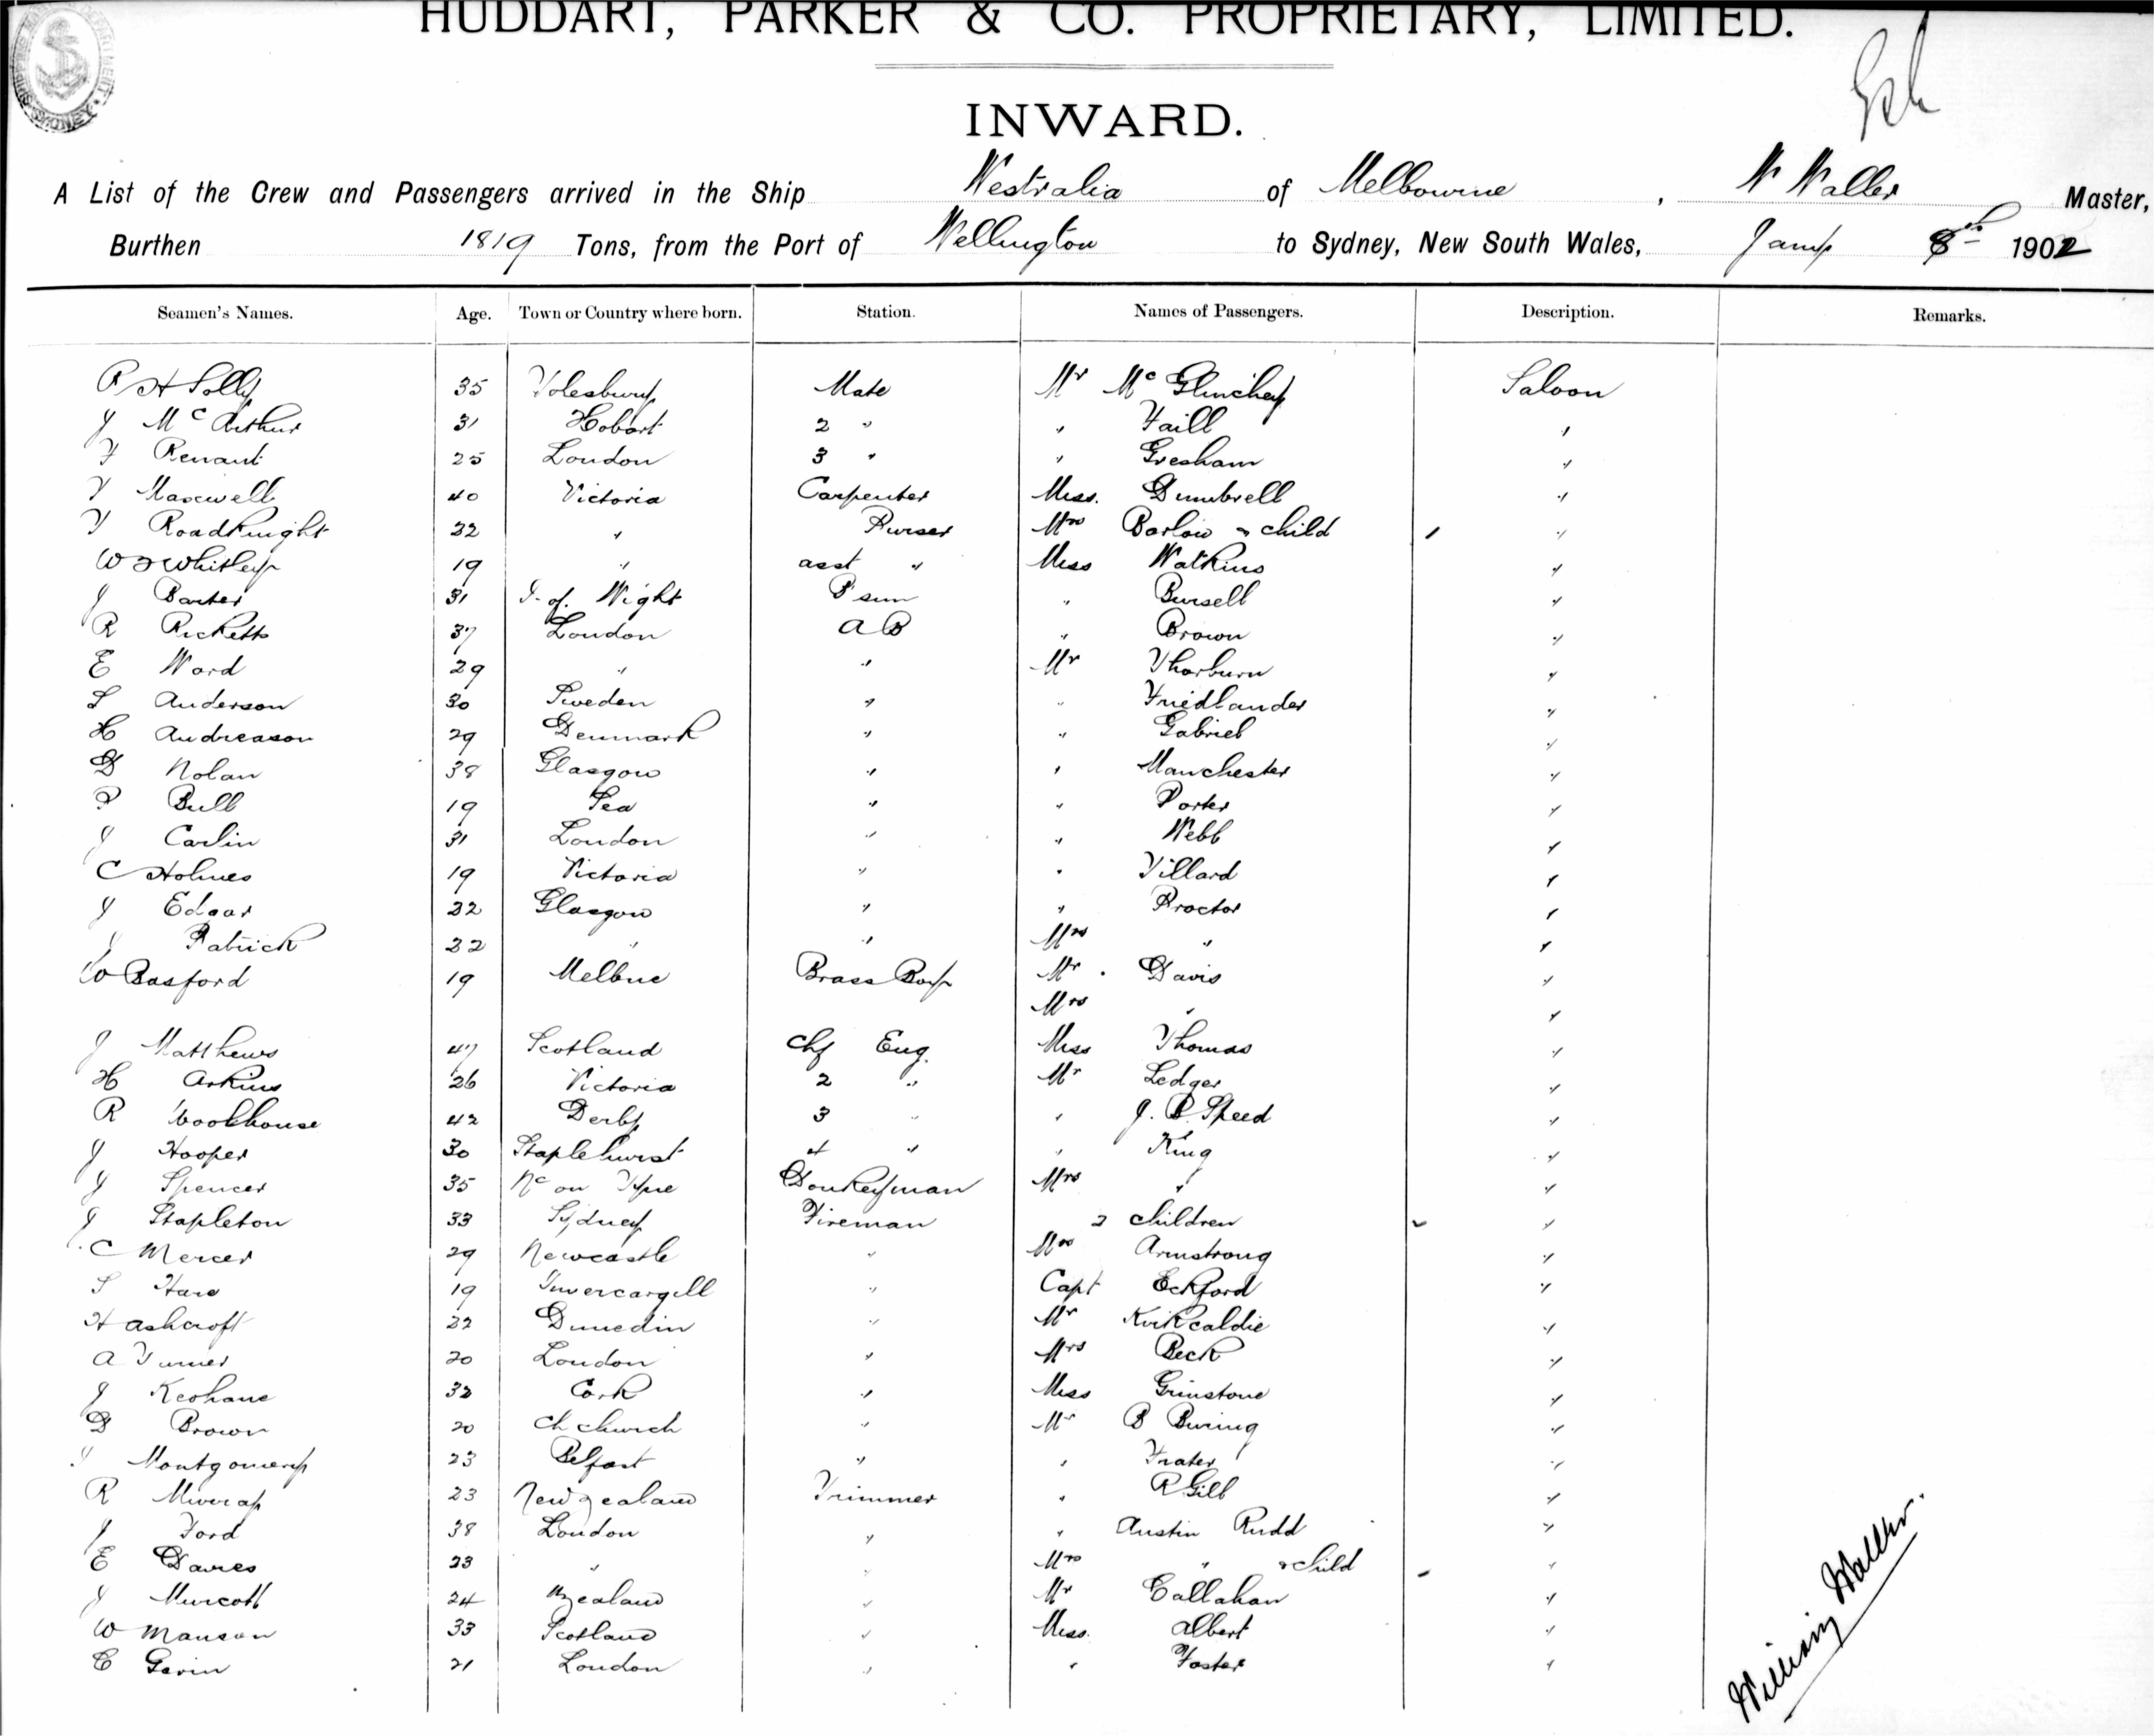 HUDDART, PARKER & CO. PROPRIETARY, LIMITED.
INWARD.
A List of the Crew and Passengers arrived in the Ship Westralia of Melbourne, W Waller Master,
Burthen 1819 Tons, from the Port of Wellington to Sydney, New South Wales, Jany 8th 1902
Seamen's Names. Age. Town or Country where born. Station. Names of Passengers. Description. Remarks.
R H Solly 35 Mate Mr McGlinchey Saloon
J McArthur 31 Hobart 2 " " Faill "
F Renaut 25 London 3 " " Gresham "
T Maxwell 40 Victoria Carpenter Miss. Dumbrell "
T Roadknight 22 " Purser Mrs Barlow & child "
W Whitley 19 " asst " Miss Watkins "
J Barter 31 I. of. Wight B'sun " Bursell "
R Ricketts 37 London AB " Brown "
E Ward 29 " " Mr Thorburn "
S Anderson 30 Sweden " " Friedlander "
H Andreason 29 Denmark " " Gabriel "
D Nolan 38 Glasgow " " Manchester "
P Bull 19 Sea " " Porter "
J Carlin 31 London " " Webb "
C Holmes 19 Victoria " " Villard "
J Edgar 22 Glasgow " " Proctor "
J Patrick 22 " " Mrs " "
W Basford 19 Melbne Brass Boy Mr . Davis "
Mrs " "
J Matthews 47 Scotland Chf Eng. Miss Thomas "
H Arkins 26 Victoria 2 " Mr Ledger "
R Woolhouse 42 Derby 3 " " J. B. Speed "
J Hooper 30 Staplehurst 4 " " King "
J Spencer 35 Nc on Tyne Donkeyman Mrs " "
J Stapleton 33 Sydney Fireman 2 children "
C Mercer 29 Newcastle " Mrs Armstrong "
S Hare 19 Invercargill " Capt Eckford "
H Ashcroft 22 Dunedin " Mr Kirkcaldie "
A Turner 20 London " Mrs Beck "
J Keohane 32 Cork " Miss Grinstone "
D Brown 20 Ch church " Mr B Buring "
J Montgomery 23 Belfast " " Frater "
R Murray 23 New Zealand Trimmer " R Gill "
J Ford 38 London " " Austin Rudd "
E Davies 23 " " Mrs " & child "
J Murcott 24 N Zealand " Mr Callahan "
W Manson 33 Scotland " Miss. Albert "
C Gavin 21 London " " Foster "
William Waller.